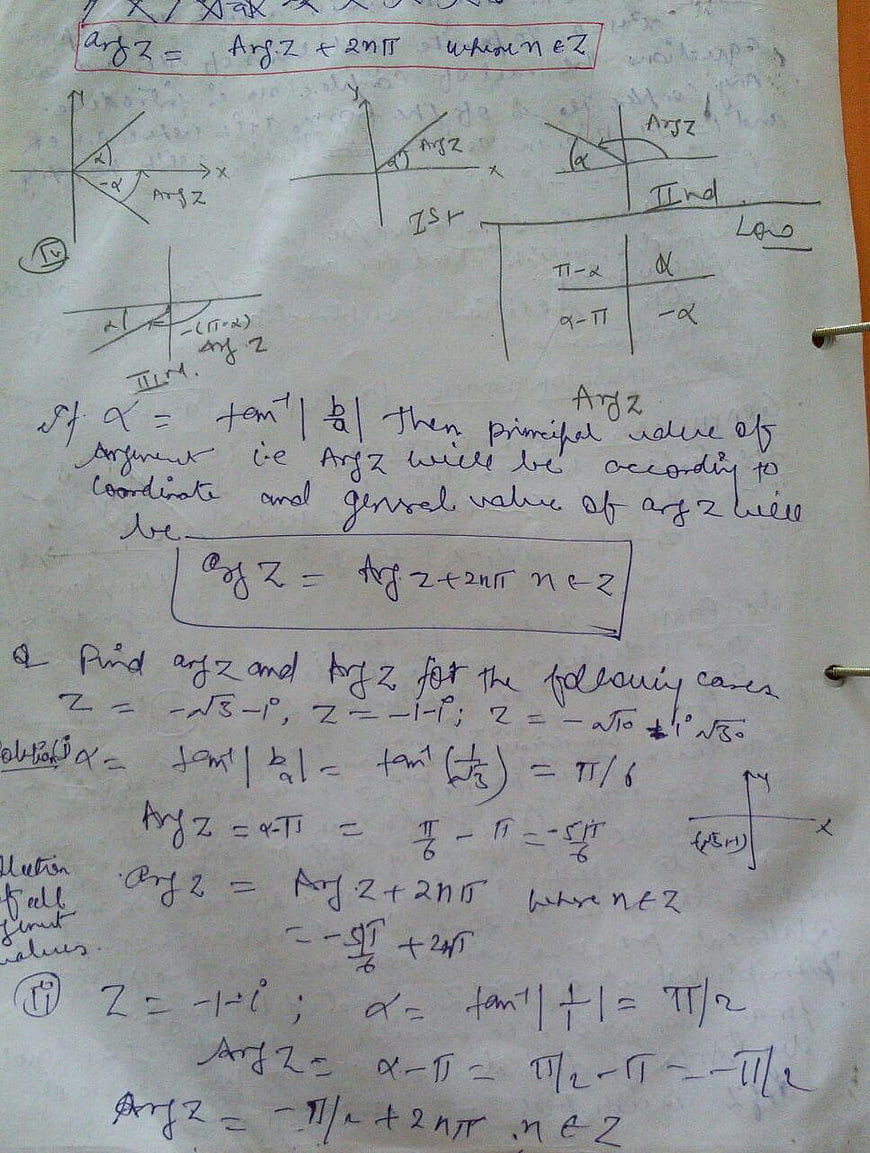 arg Z = Arg Z + 2nπ where n ∈ Z
y
α
-α
x
Arg Z
IV
y
α
Arg Z
x
Ist
α
Arg Z
IInd
α
-(π-α)
Arg Z
IIIrd.
π-α
α
α-π
-α
Arg Z
If α = tan⁻¹ |b/a| then principal value of
Argument i.e Arg Z will be according to
coordinate and general value of arg Z will
be
arg Z = Arg Z + 2nπ n ∈ Z
Q Find arg Z and Arg Z for the following cases
Z = -√3 - i, Z = -1-i; Z = -√10 + i√30
Solution(i) α = tan⁻¹ |b/a| = tan⁻¹ (1/√3) = π/6
Arg Z = α-π = π/6 - π = -5π/6
y
x
(-√3,-1)
arg Z = Arg Z + 2nπ where n ∈ Z
of all
values.
= -5π/6 + 2nπ
(ii) Z = -1-i ; α = tan⁻¹ |1/1| = π/2
Arg Z = α - π = π/2 - π = -π/2
Arg Z = -π/2 + 2nπ . n ∈ Z